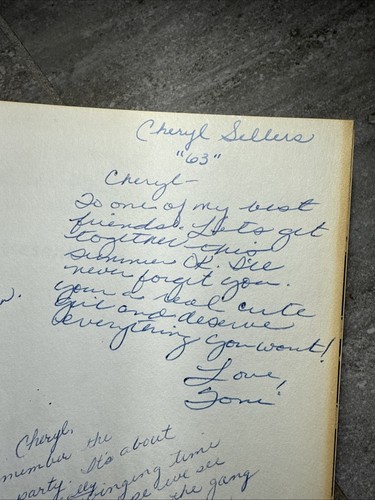 Cheryl Sellers
"63"
Cheryl-
To one of my best
friends. Lets get
together this
summer OK. I'll
never forget you.
your a real cute
girl and deserve
everything you want!
Love,
Toni
Cheryl,
member the
party. Its about
singing time
we see
the gang